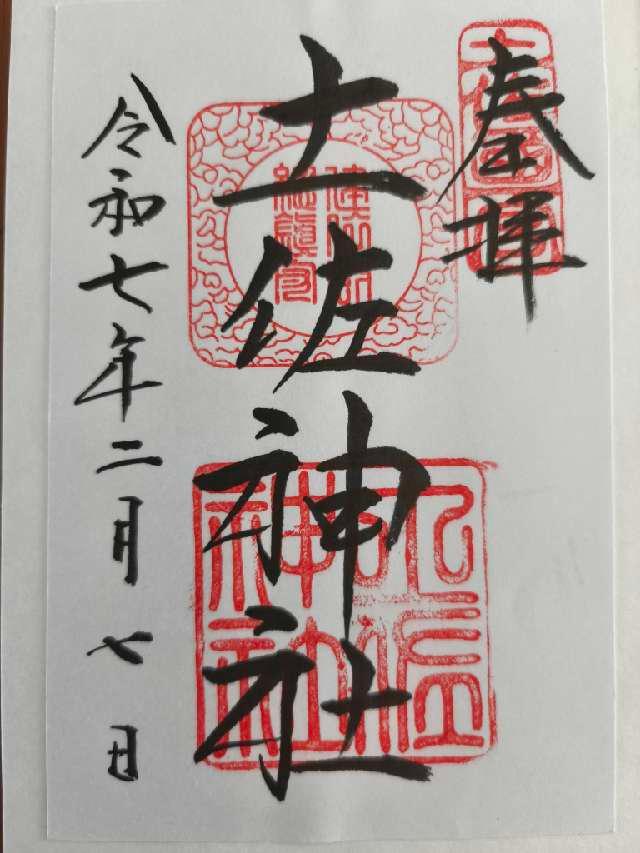 奉拝
土佐神社
令和七年二月七日
土佐神社